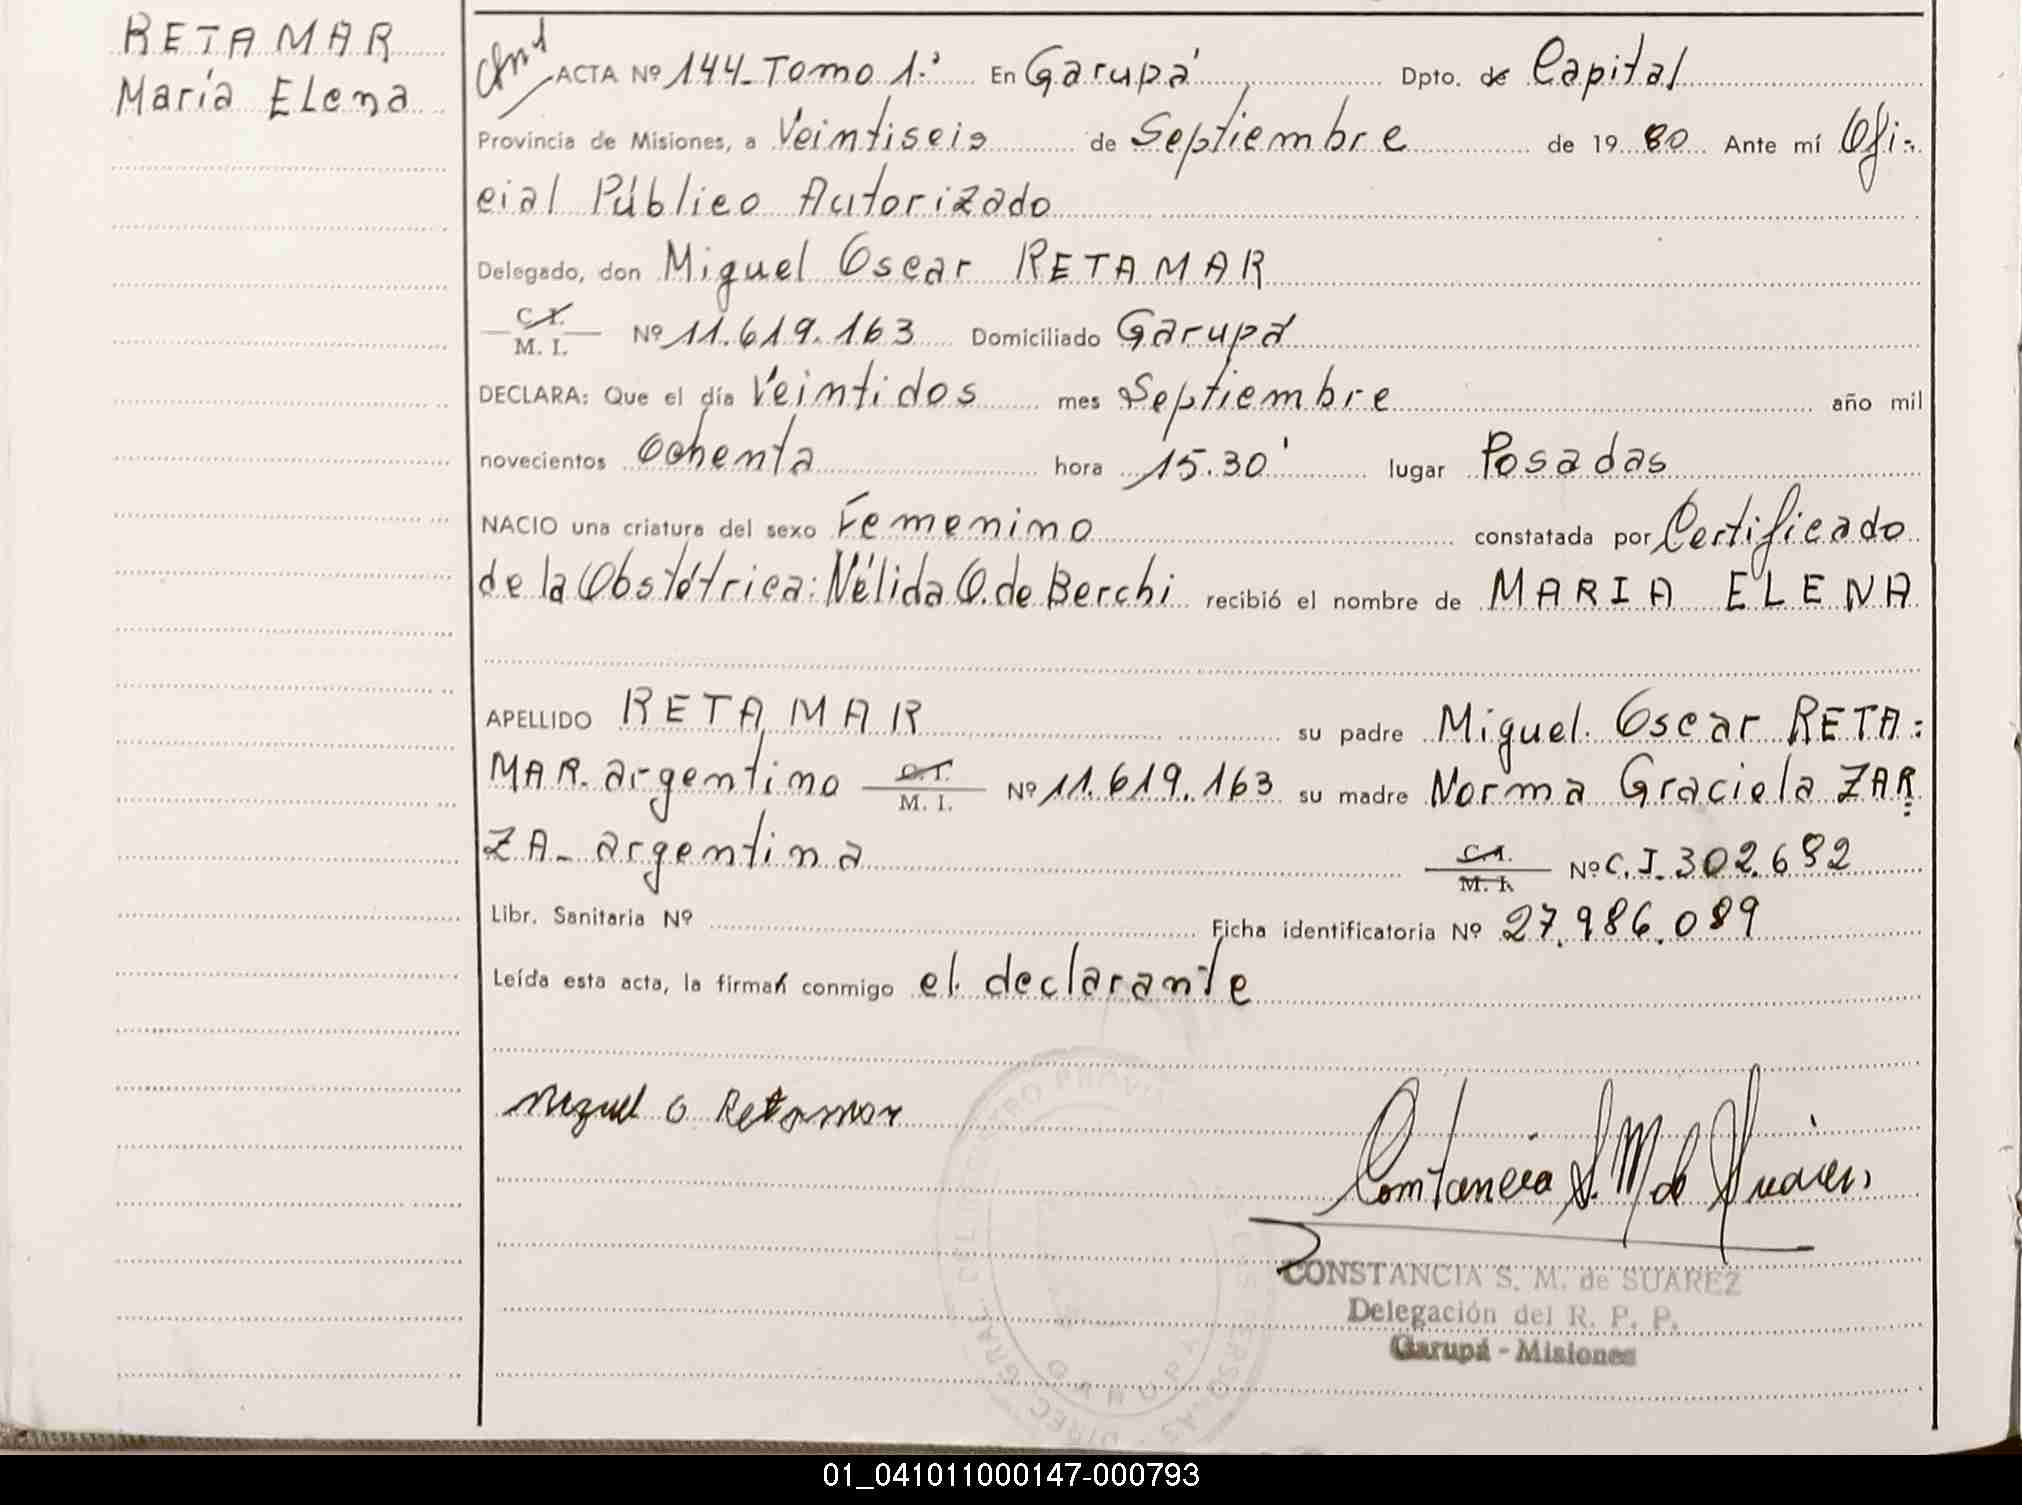 RETAMAR
María Elena
ACTA Nº 144- Tomo 1.º En Garupá Dpto. de Capital
Provincia de Misiones, a Veintiseis de Septiembre de 1980 Ante mí Ofi-
cial Público Autorizado
Delegado, don Miguel Oscar RETAMAR
C. I.
M. I. Nº 11.619.163 Domiciliado Garupá
DECLARA: Que el día Veintidos mes Septiembre año mil
novecientos Ochenta hora 15.30' lugar Posadas
NACIO una criatura del sexo Femenino constatada por Certificado
de la Obstétrica: Nélida O. de Berchi recibió el nombre de MARIA ELENA
APELLIDO RETAMAR su padre Miguel Oscar RETA-
MAR. argentino C. I. M. I. Nº 11.619.163 su madre Norma Graciela ZAR
ZA- argentina C. I. M. I. Nº C.I. 302.682
Libr. Sanitaria Nº Ficha identificatoria Nº 27.986.089
Leída esta acta, la firman conmigo el declarante
Miguel O Retamar
Constancia S. M de Suárez
CONSTANCIA S. M. de SUAREZ
Delegación del R. P. P.
Garupá - Misiones
01_041011000147-000793